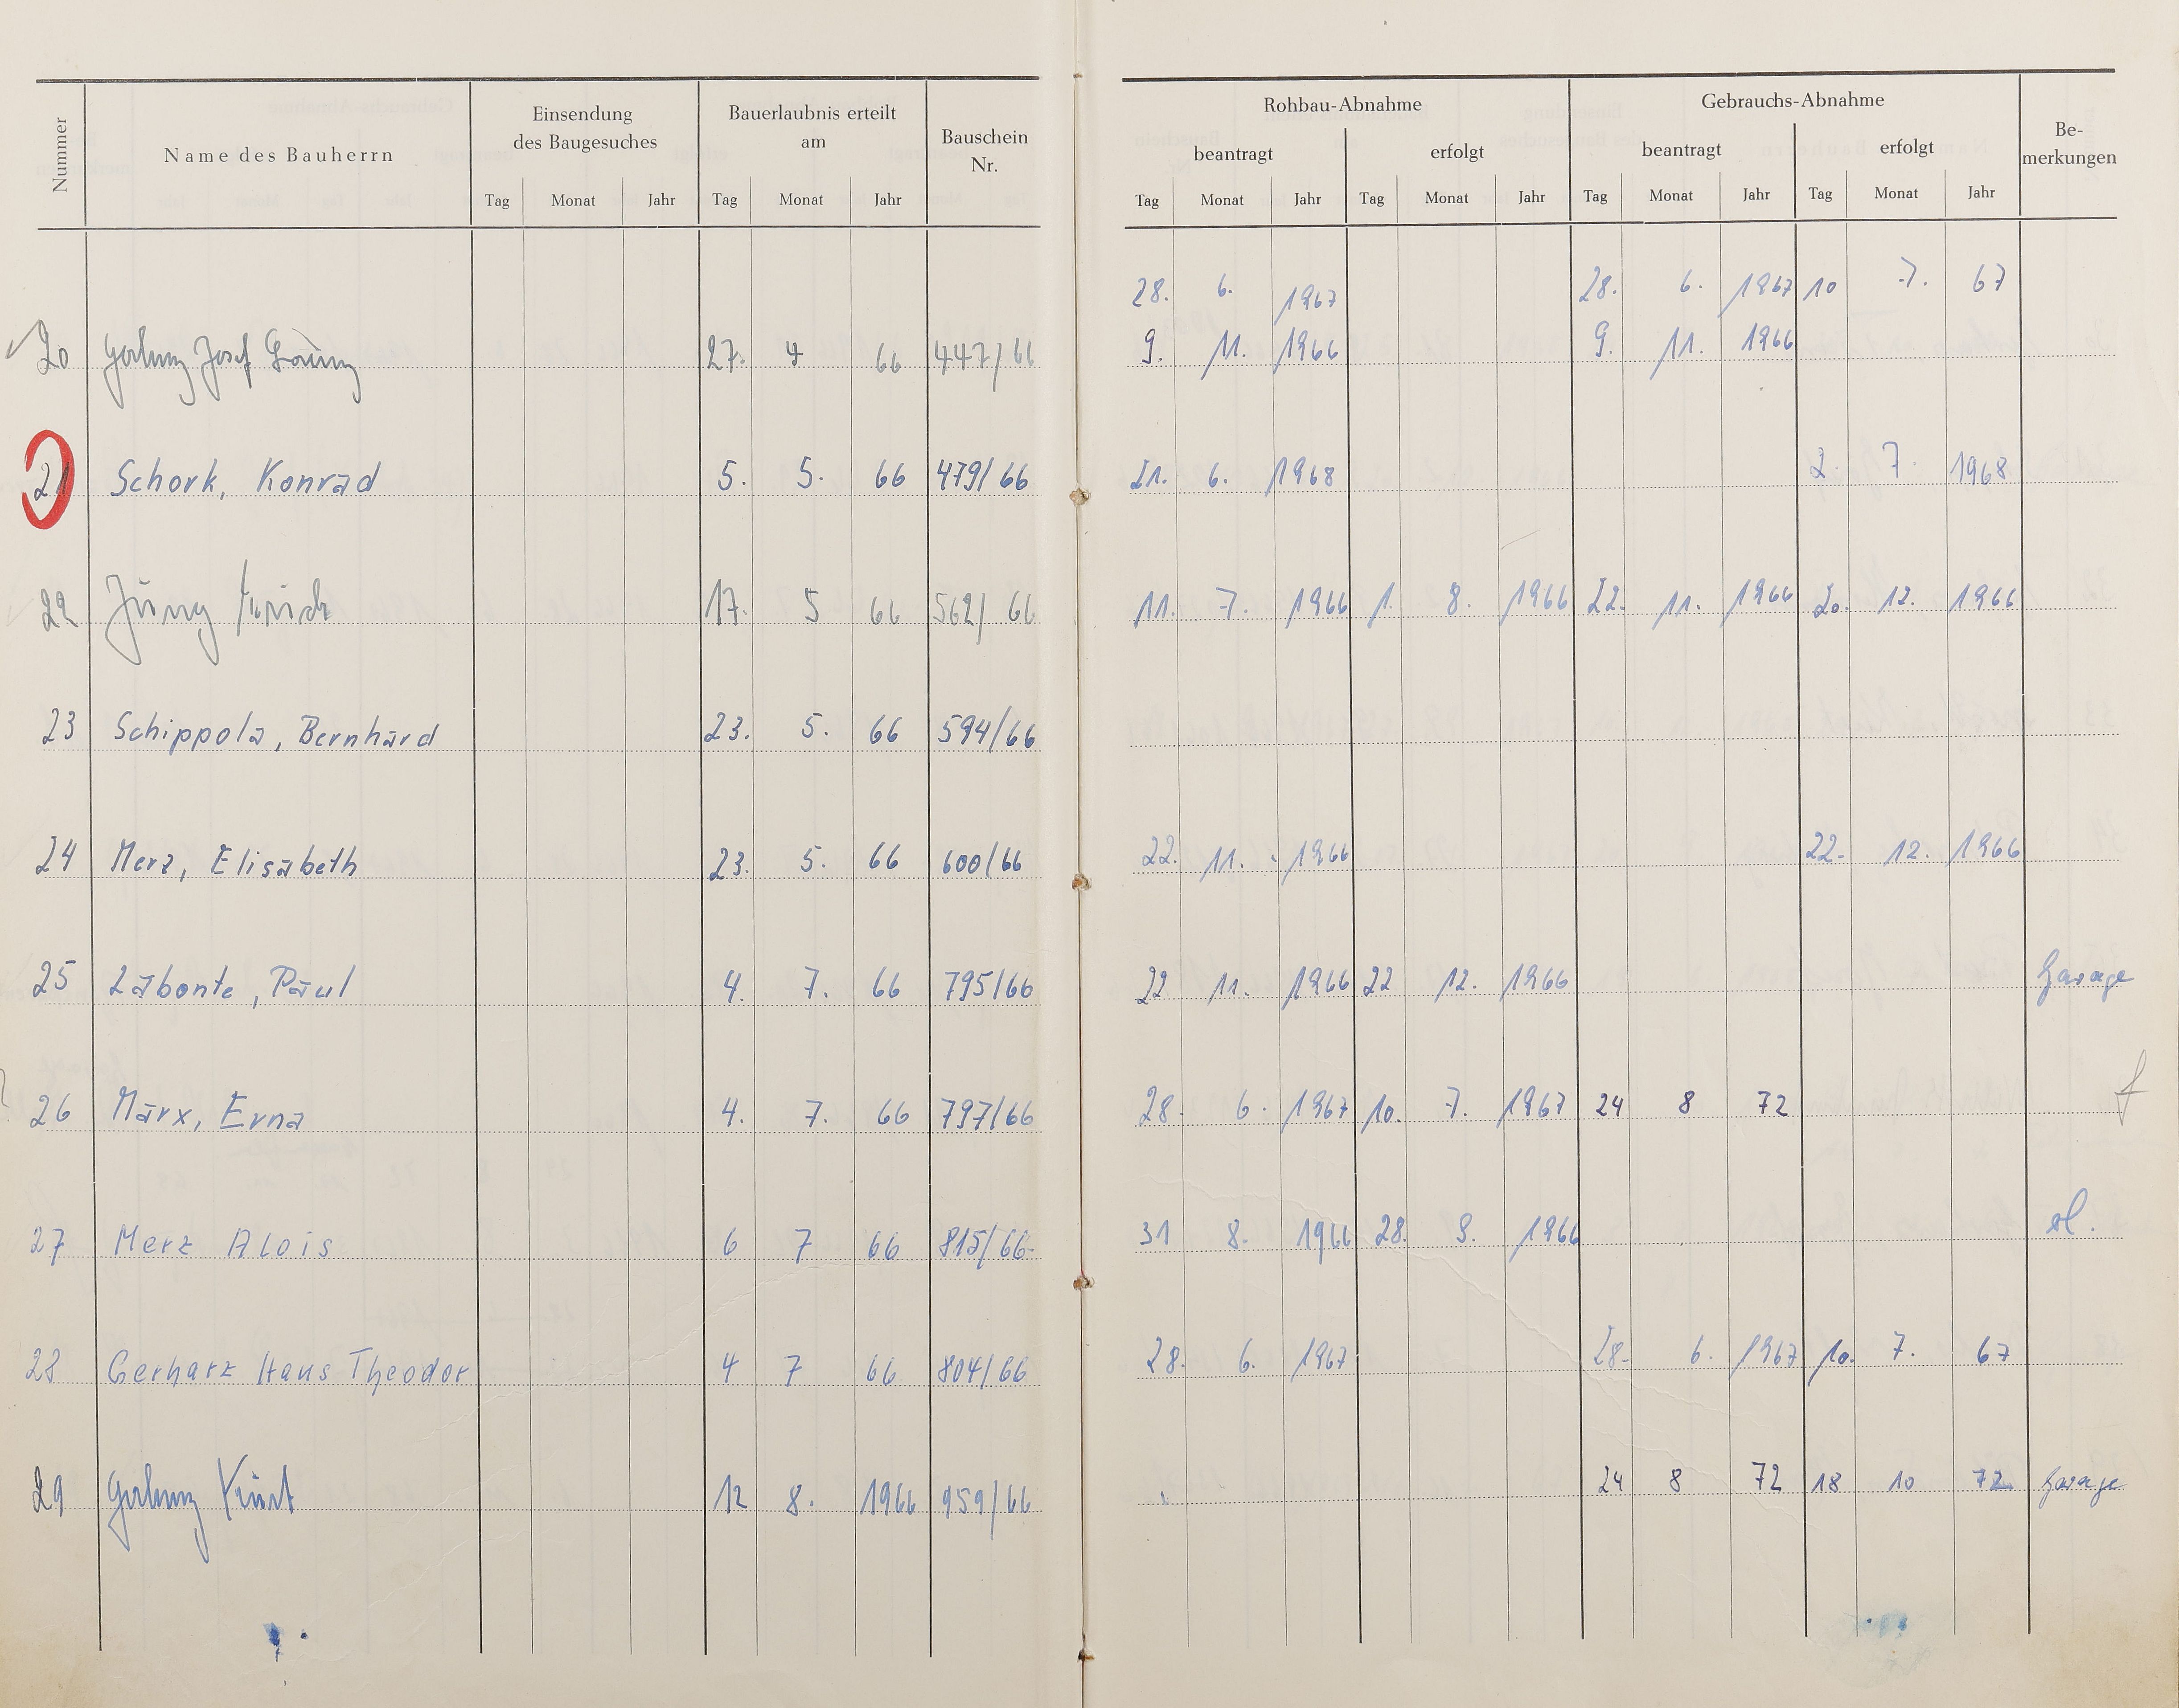 Nummer
Name des Bauherrn
Einsendung
des Baugesuches
Tag Monat Jahr
Bauerlaubnis erteilt
am
Tag Monat Jahr
Bauschein
Nr.
Rohbau-Abnahme
beantragt
Tag Monat Jahr
erfolgt
Tag Monat Jahr
Gebrauchs-Abnahme
beantragt
Tag Monat Jahr
erfolgt
Tag Monat Jahr
Be-
merkungen
28. 6. 1967 28. 6. 1967 10 7. 67
20 Josef 27. 4 66 447/66 9. 11. 1966 9. 11. 1966
21 Schork, Konrad 5. 5. 66 479/66 21. 6. 1968 2. 7. 1968
22 Jung 17. 5 66 562/66 11. 7. 1966 1. 8. 1966 22. 11. 1966 20. 12. 1966
23 Schippola, Bernhard 23. 5. 66 594/66
24 Merz, Elisabeth 23. 5. 66 600/66 22. 11. 1966 22. 12. 1966
25 Labonte, Paul 4. 7. 66 795/66 22 11. 1966 22 12. 1966 Garage
26 Marx, Erna 4. 7. 66 797/66 28. 6. 1967 10. 7. 1967 24 8 72
27 Merz Alois 6 7 66 815/66 31 8. 1966 28. 9. 1966
28 Gerharz Hans Theodor 4 7 66 804/66 28. 6. 1967 28. 6. 1967 10. 7. 67
29 Kurt 12 8. 1966 959/66 24 8 72 18 10 72 Garage